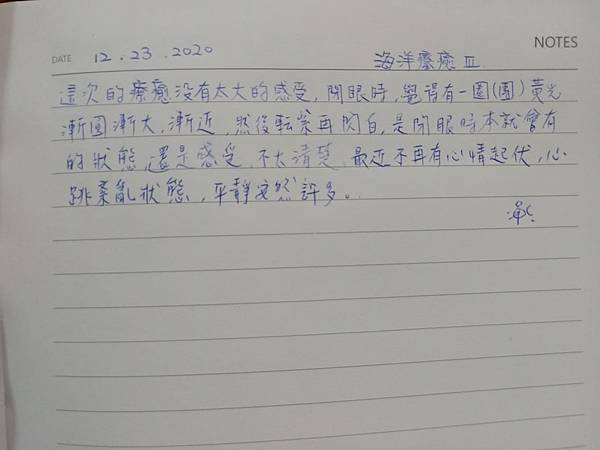 NOTES
DATE 12.23.2020 海洋療癒 III
這次的療癒没有太大的感受,閉眼時,覺得有一圈(團)黃光
漸圓漸大,漸近,然後転紫再閃白,是閉眼時本就會有
的狀態,還是感受,不太清楚,最近不再有心情起伏,心
跳紊亂狀態,平靜安然許多。